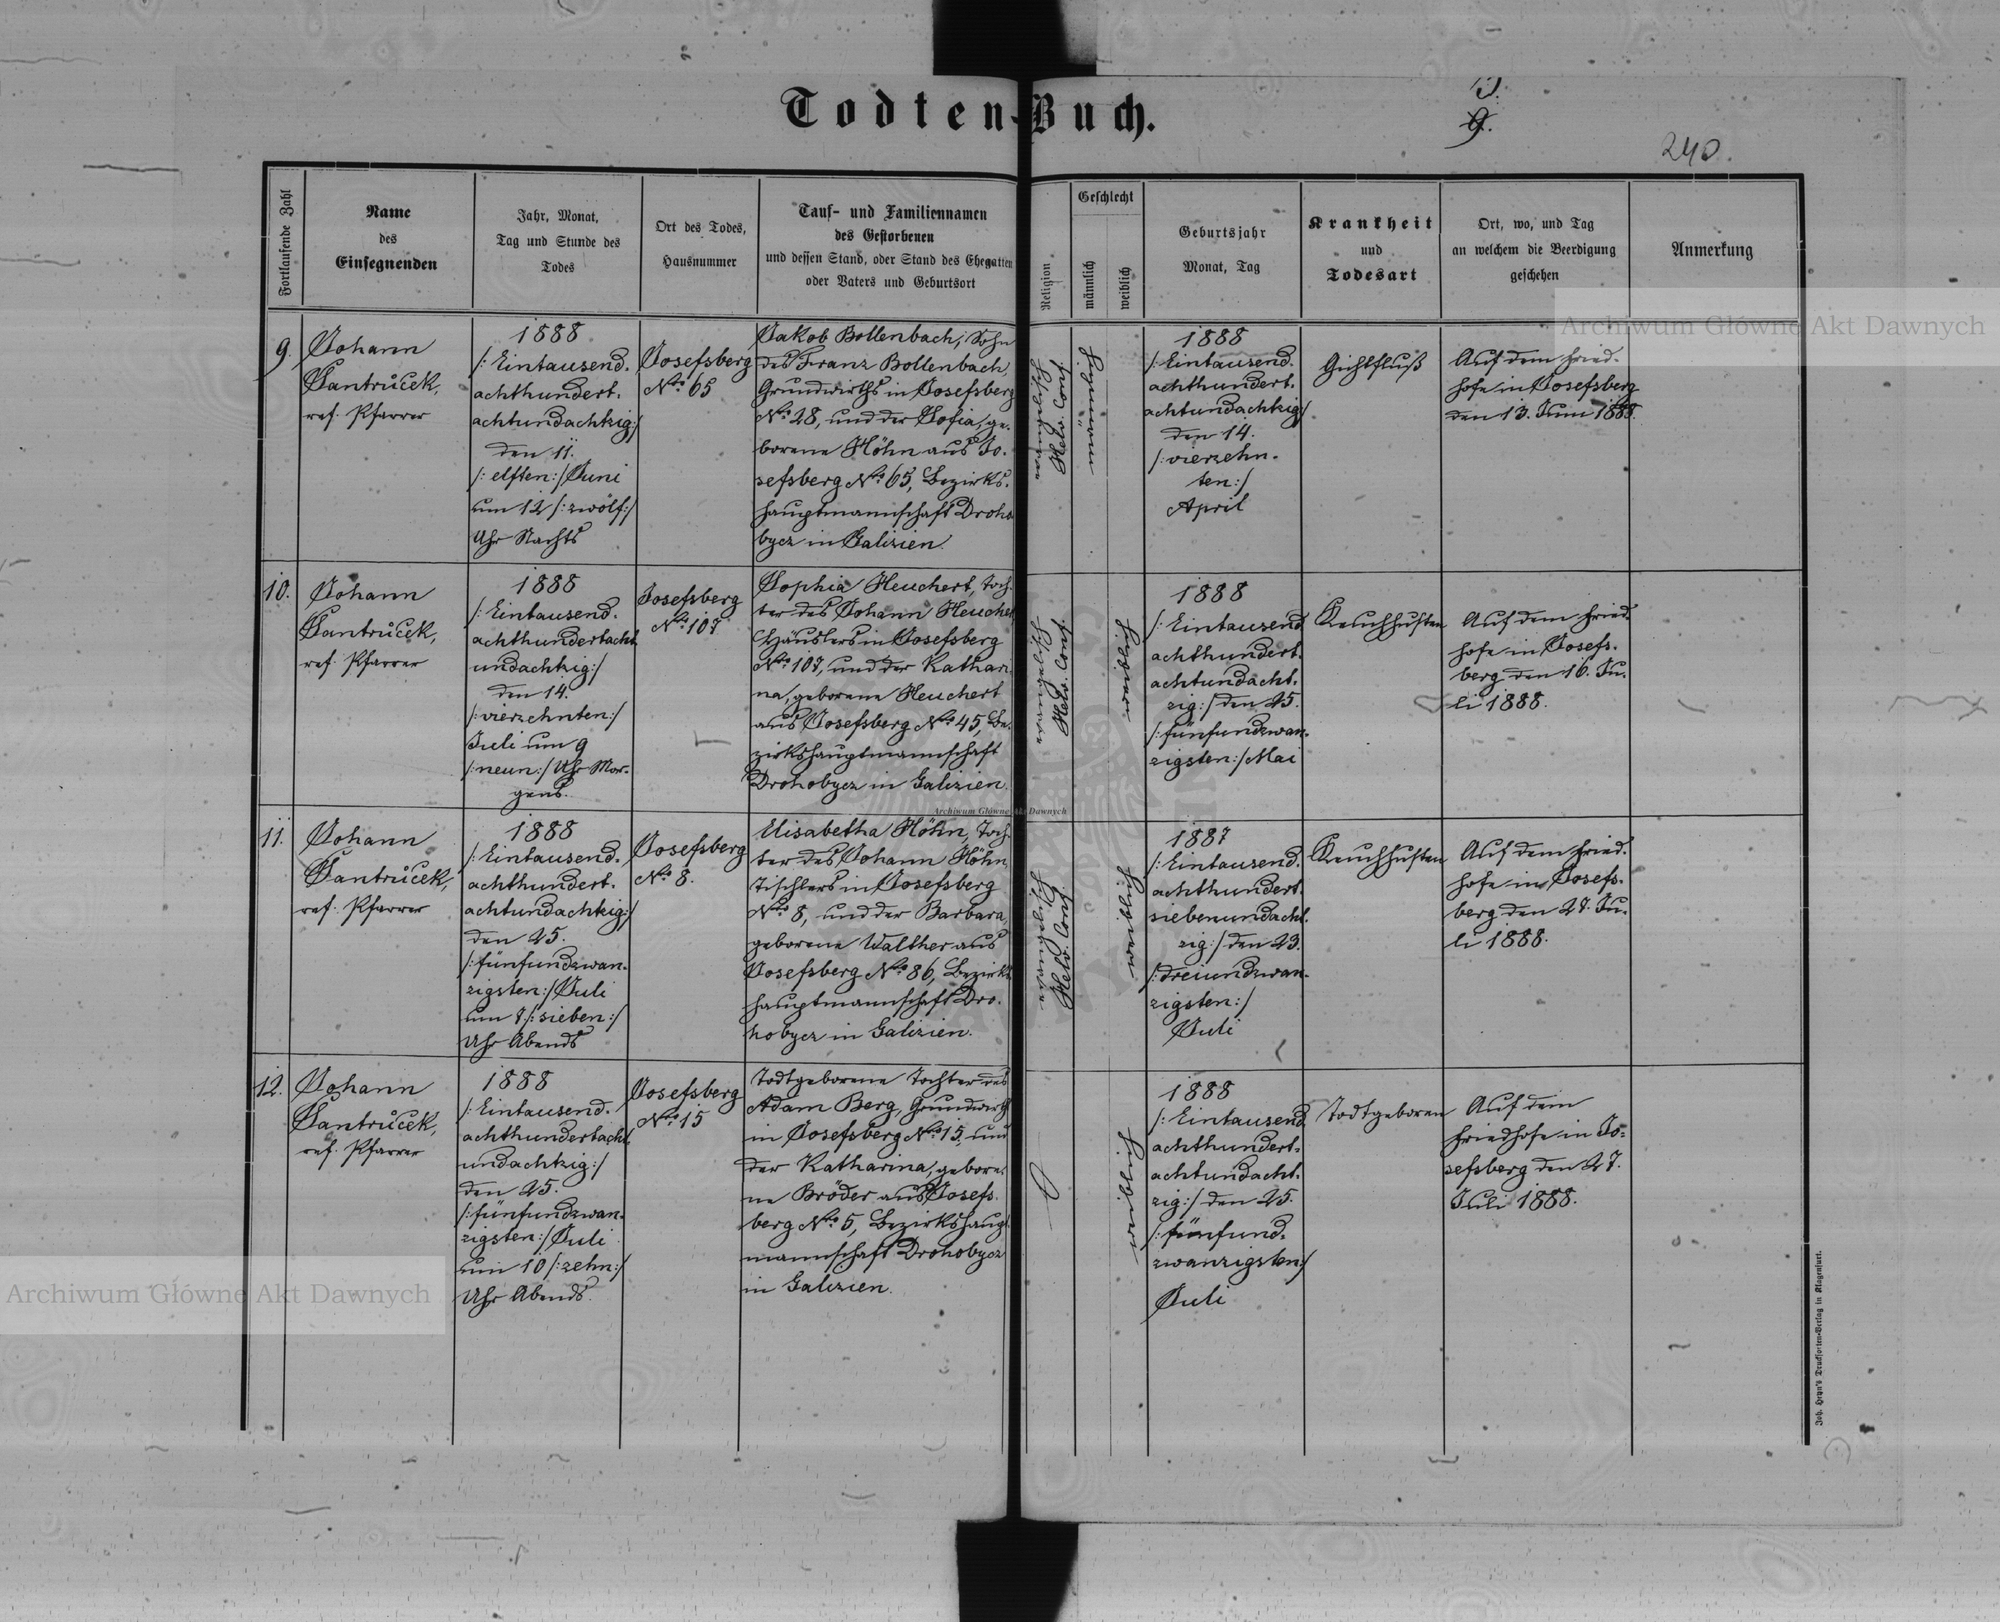 Todten-Buch.
9.
240.
Fortlaufende Zahl
Name
des
Einsegnenden
Jahr, Monat,
Tag und Stunde des
Todes
Ort des Todes,
Hausnummer
Tauf- und Familiennamen
des Gestorbenen
und dessen Stand, oder Stand des Ehegatten
oder Vaters und Geburtsort
Religion
Geschlecht
männlich
weiblich
Geburtsjahr
Monat, Tag
Krankheit
und
Todesart
Ort, wo, und Tag
an welchem die Beerdigung
geschehen
Anmerkung
9.
Johann
Šantrůček,
ref. Pfarrer
1888
/: Eintausend.
achthundert.
achtundachtzig:/
den 11.
/: elften:/ Juni
um 12 /: zwölf:/
Uhr Nachts
Josefsberg
No. 65
Jakob Bollenbach, Sohn
des Franz Bollenbach,
Grundwirths in Josefsberg
No. 28, und der Sofia, ge-
borene Höhn aus Jo-
sefsberg No. 65, Bezirks-
hauptmannschaft Droho
bycz in Galizien.
Helv. Conf.
1888
/: Eintausend.
achthundert.
achtundachtzig/
den 14.
/: vierzehn-
ten:/
April
Auf dem Fried-
hofe in Josefsberg
den 13. Juni 1888.
10.
Johann
Šantrůček,
ref. Pfarrer
1888
/: Eintausend.
achthundertacht
undachtzig:/
den 14.
/: vierzehnten:/
Juli um 9
/: neun:/ Uhr Mor-
gens.
Josefsberg
No. 107
Sophia Heuchert, Toch-
ter des Johann Heuchert
Häuslers in Josefsberg
No. 107, und der Kathari-
na, geborene Heuchert
aus Josefsberg No. 45, Be-
zirkshauptmannschaft
Drohobycz in Galizien.
Helv. Conf.
1888
/: Eintausend
achthundert.
achtundacht-
zig:/ den 25.
/: fünfundzwan-
zigsten:/ Mai
Keuchhusten
Auf dem Fried-
hofe in Josefs-
berg den 16. Ju-
li 1888.
11.
Johann
Šantrůček,
ref. Pfarrer
1888
/: Eintausend.
achthundert.
achtundachtzig:/
den 25.
/: fünfundzwan-
zigsten:/ Juli
um 7 /: sieben:/
Uhr Abends
Josefsberg
No. 8.
Elisabetha Höhn, Toch-
ter des Johann Höhn,
Tischlers in Josefsberg
No. 8, und der Barbara,
geborene Walther aus
Josefsberg No. 86, Bezirks
hauptmannschaft Dro-
hobycz in Galizien.
Helv. Conf.
1887
/: Eintausend.
achthundert.
siebenundacht-
zig:/ den 23.
/: dreiundzwan-
zigsten:/
Juli
Keuchhusten
Auf dem Fried-
hofe in Josefs-
berg den 27. Ju-
li 1888.
12.
Johann
Šantrůček,
ref. Pfarrer
1888
/: Eintausend.
achthundertacht
undachtzig:/
den 25.
/: fünfundzwan-
zigsten:/ Juli
um 10 /: zehn:/
Uhr Abends.
Josefsberg
No. 15
Todtgeborene Tochter des
Adam Berg, Grundwirth
in Josefsberg No. 15, und
der Katharina, gebore-
ne Bröder aus Josefs-
berg No. 5, Bezirkshaupt
mannschaft Drohobycz
in Galizien.
1888
/: Eintausend
achthundert-
achtundacht-
zig:/ den 25.
/: fünfund-
zwanzigsten:/
Juli
Todtgeboren
Auf dem
Friedhofe in Jo-
sefsberg den 27.
Juli 1888.
Joh. Heyn's Drucksorten-Verlag in Klagenfurt.
Archiwum Główne Akt Dawnych
Archiwum Główne Akt Dawnych
Archiwum Główne Akt Dawnych